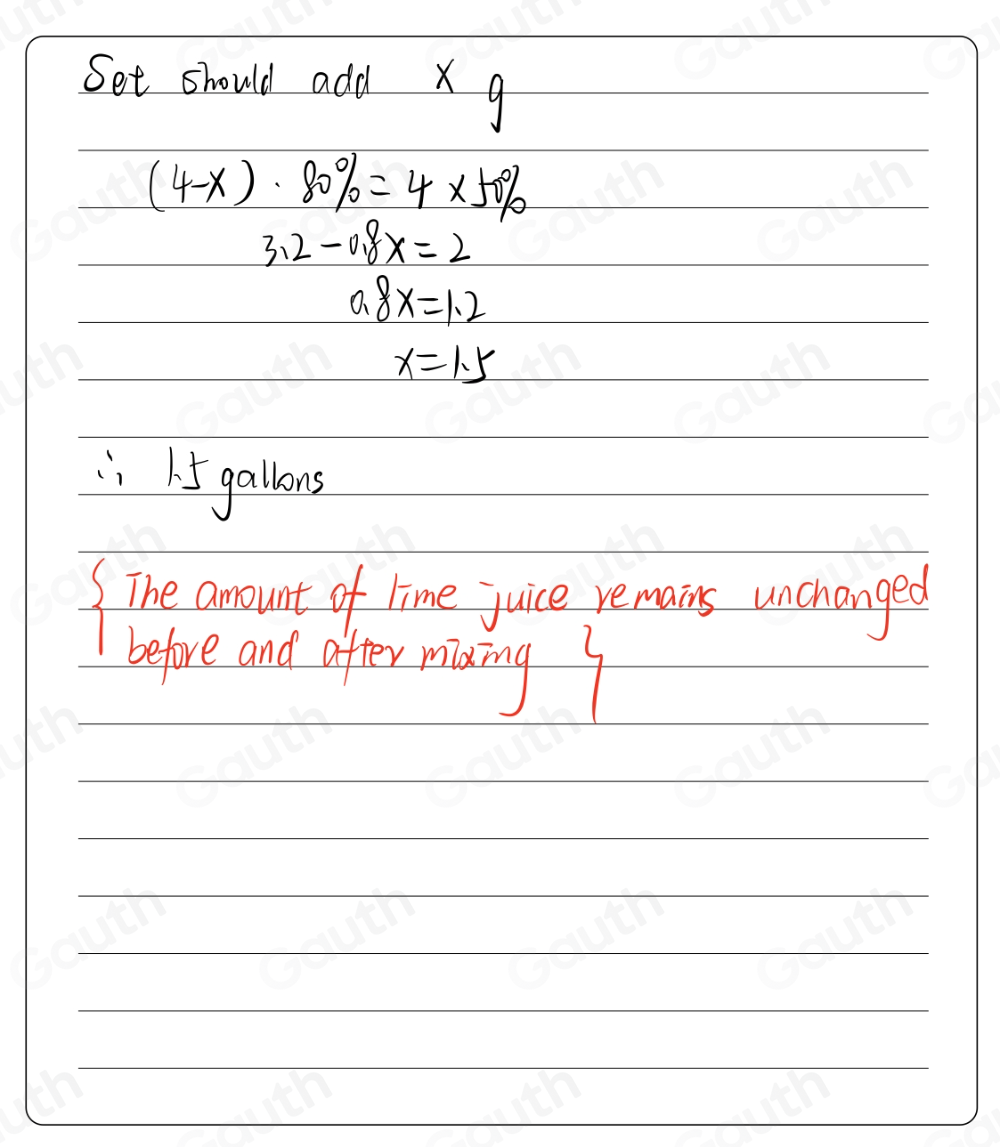 Set should add x g
(4-x)·80%=4×50%
3.2-0.8x=2
0.8x=1.2
x=1.5
∴ 1.5 gallons
{ The amount of lime juice remains unchanged
before and after mixing }